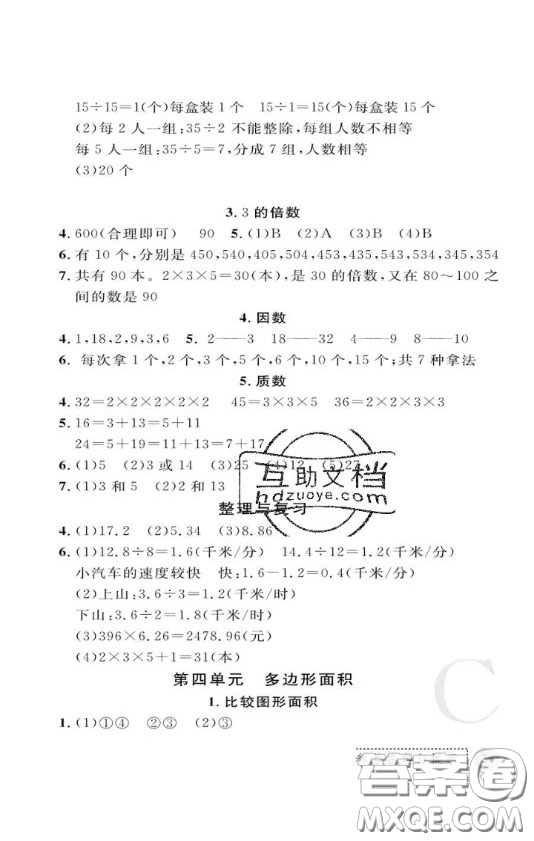 15÷15=1(个)每盒装1个　15÷1=15(个)每盒装15个
(2)每2人一组:35÷2不能整除,每组人数不相等
每5人一组:35÷5=7,分成7组,人数相等
(3)20个
3.3的倍数
4.600(合理即可)　90　5.(1)B　(2)A　(3)B　(4)B
6.有10个,分别是450,540,405,504,453,435,543,534,345,354
7.共有90本。2×3×5=30(本),是30的倍数,又在80～100之
间的数是90
4.因数
4.1,18,2,9,3,6　5.2——3　18——32　4——9　8——10
6.每次拿1个,2个,3个,5个,6个,10个,15个;共7种拿法
5.质数
4.32=2×2×2×2×2　45=3×3×5　36=2×2×3×3
5.16=3+13=5+11
24=5+19=11+13=7+17
6.(1)5　(2)3或14　(3)25　(4)12　(5)27
7.(1)3和5　(2)2和13
互助文档
hdzuoye.com
整理与复习
4.(1)17.2　(2)5.34　(3)8.86
6.(1)12.8÷8=1.6(千米/分)　14.4÷12=1.2(千米/分)
小汽车的速度较快　快:1.6-1.2=0.4(千米/分)
(2)上山:3.6÷3=1.2(千米/时)
下山:3.6÷2=1.8(千米/时)
(3)396×6.26=2478.96(元)
(4)2×3×5+1=31(本)
第四单元　多边形面积
1.比较图形面积
1.(1)①④　②③　(2)③
C
答案卷
MXQE.COM